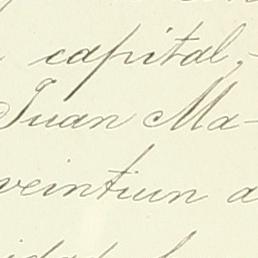 capital,-
Juan Ma-
veintiun a